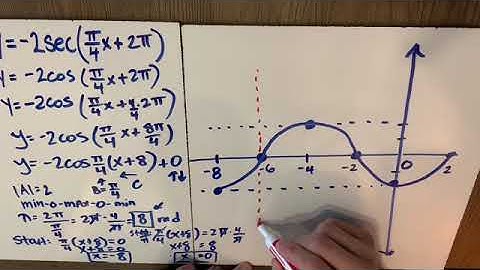 y=-2sec(π/4x+2π)
y=-2cos(π/4x+2π)
y=-2cos(π/4x+4/4·2π)
y=-2cos(π/4x+8π/4)
y=-2cosπ/4(x+8)+0
|A|=2 B=π/4 C
min-o-max-o-min
=2π/(π/4)=2π·4/π=8 rad
start: π/4(x+8)=0
x+8=0
x=-8
π/4(x+8)=2π·4/π
x+8=8
x=0
-8 -6 -4 -2 0 2